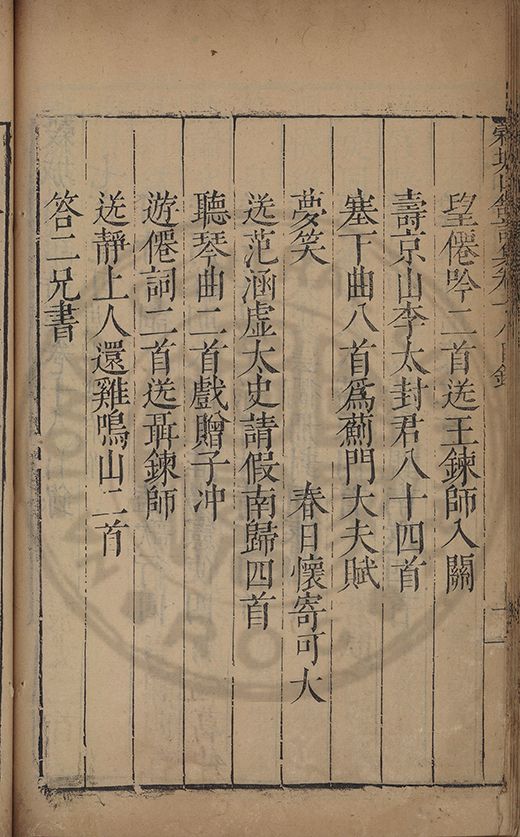 望僊吟二首送王鍊師入關
壽京山李太封君八十四首
塞下曲八首爲薊門大夫賦
夢笑 春日懷寄可大
送范涵虛太史請假南歸四首
聽琴曲二首戲贈子冲
遊僊詞二首送聶鍊師
送靜上人還雞鳴山二首
答二兄書